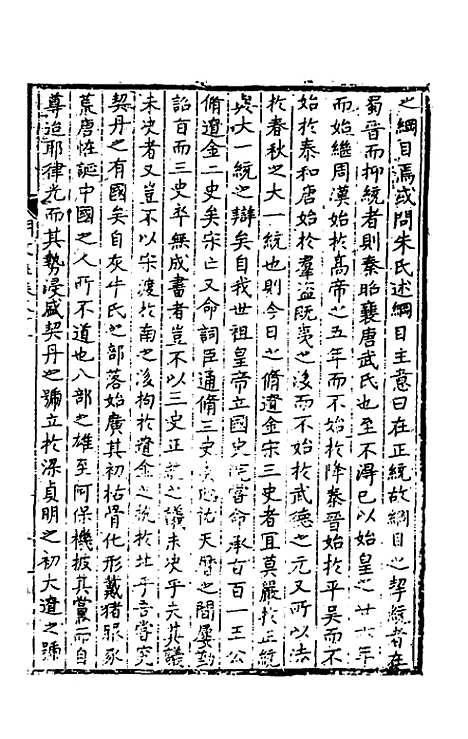 之綱目焉或問朱氏述綱目主意曰在正統故綱目之挈統者在
蜀晉而抑統者則秦昭襄唐武氏也至不得已以始皇之廿六年
而始繼周漢始於高帝之五年而不始於降秦晉始於平吳而不
始於泰和唐始於羣盜既夷之後而不始於武德之元又所以法
於春秋之大一統也則今日之脩遼金宋三史者宜莫嚴於正統
與大一統之辯矣自我世祖皇帝立國史院嘗命承旨百一王公
脩遼金二史矣宋亡又命詞臣通脩三史矣延祐天曆之間屢勤
詔旨而三史卒無成書者豈不以三史正統之議未決乎夫其議
未決者又豈不以宋渡於南之後拘於遼金之抗於北乎吾嘗究
契丹之有國矣自灰牛氏之部落始廣其初枯骨化形戴猪服豕
荒唐怪誕中國之人所不道也八部之雄至阿保機披其黨而自
尊迨耶律光而其勢浸盛契丹之號立於梁貞明之初大遼之號